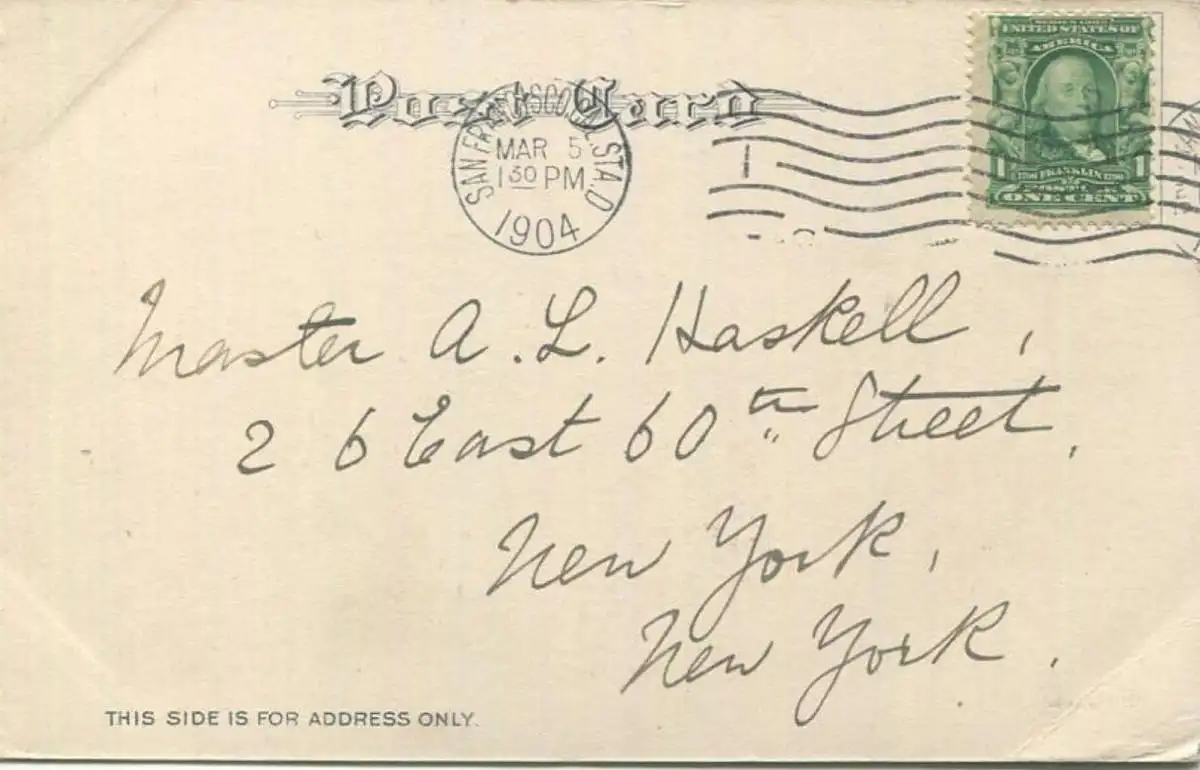 Post Card
SERIES 1902
UNITED STATES OF
AMERICA
1 1
1706 FRANKLIN 1790
ONE CENT
SAN FRANCISCO, CAL. STA. D
MAR 5
1 30 PM
1904
Master A. L. Haskell,
26 East 60th Street,
New York,
New York.
THIS SIDE IS FOR ADDRESS ONLY.